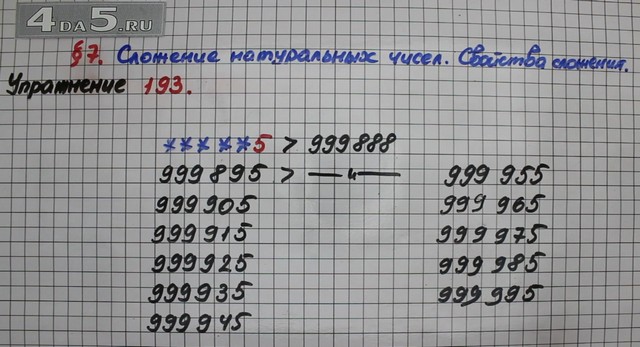 4DA5.RU
§7. Сложение натуральных чисел. Свойства сложения.
Упражнение 193.
*****5 > 999888
999895 > —〃—
999905
999915
999925
999935
999945
999955
999965
999975
999985
999995